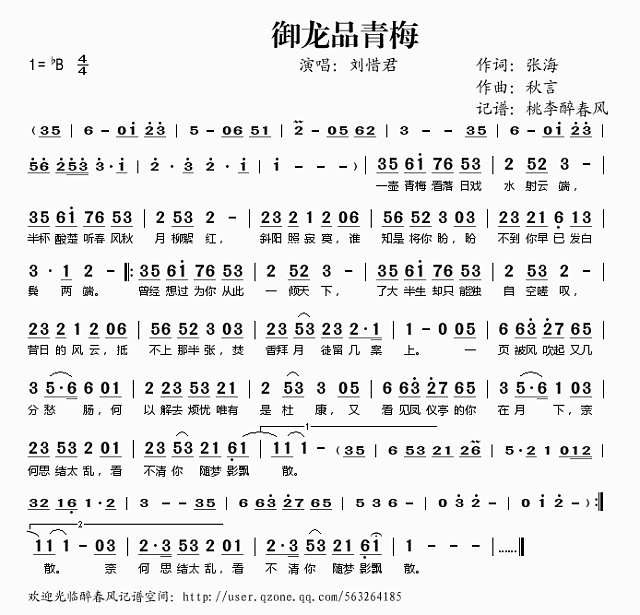 御龙品青梅
1=♭B 4/4
演唱：刘惜君
作词：张海
作曲：秋言
记谱：桃李醉春风
（35 | 6 - 01 23 | 5 - 06 51 | 2 - 05 62 | 3 - - 35 | 6 - 01 23 |
56 253 3·1 | 2·3 2·1 | 1 - - -） | 35 61 76 53 | 2 52 3 - |
一壶青梅看落日戏 水 射云端，
35 61 76 53 | 2 53 2 - | 23 21 2 06 | 56 52 3 03 | 23 21 6 13 |
半杯酸楚听春风秋 月 柳絮 红， 斜阳 照寂寞，谁 知是 将你 盼，盼 不到 你早已发白
3·1 2 - ‖: 35 61 76 53 | 2 52 3 - | 35 61 76 53 | 2 53 2 - |
鬓 两 端。 曾经 想过 为你 从此 一 倾天 下， 了大 半生 却只 能独 自 空嗟 叹，
23 21 2 06 | 56 52 3 03 | 23 53 2·1 | 1 - 0 05 | 6 63 27 65 |
昔日的风云，抵 不上 那半 张，焚 香拜月 徒留几案 上。 一 页 被风 吹起 又几
3 5·6 6 01 | 2 23 53 21 | 2 53 5 03 | 6 63 27 65 | 3 5·6 1 03 |
分 愁 肠，何 以 解去 烦忧 唯有 是 杜 康，又 看 见凤 仪亭 的你 在 月 下，奈
23 53 2 01 | 23 53 21 61 | 11 1 - （35 | 6 53 21 26 | 5·2 1 012 |
何思 绪太 乱，看 不清 你 随梦 影飘 散。
32 16 1·2 | 3 - - 05 | 6 63 27 65 | 5·1 3 - | 0 3 2 - | 0 1 2 -） :‖
11 1 - 03 | 2·3 53 2 01 | 2·3 53 21 61 | 1 - - - |……‖
散。 奈 何 思 绪太 乱，看 不 清 你 随梦 影飘 散。
欢迎光临醉春风记谱空间：http://user.qzone.qq.com/563264185